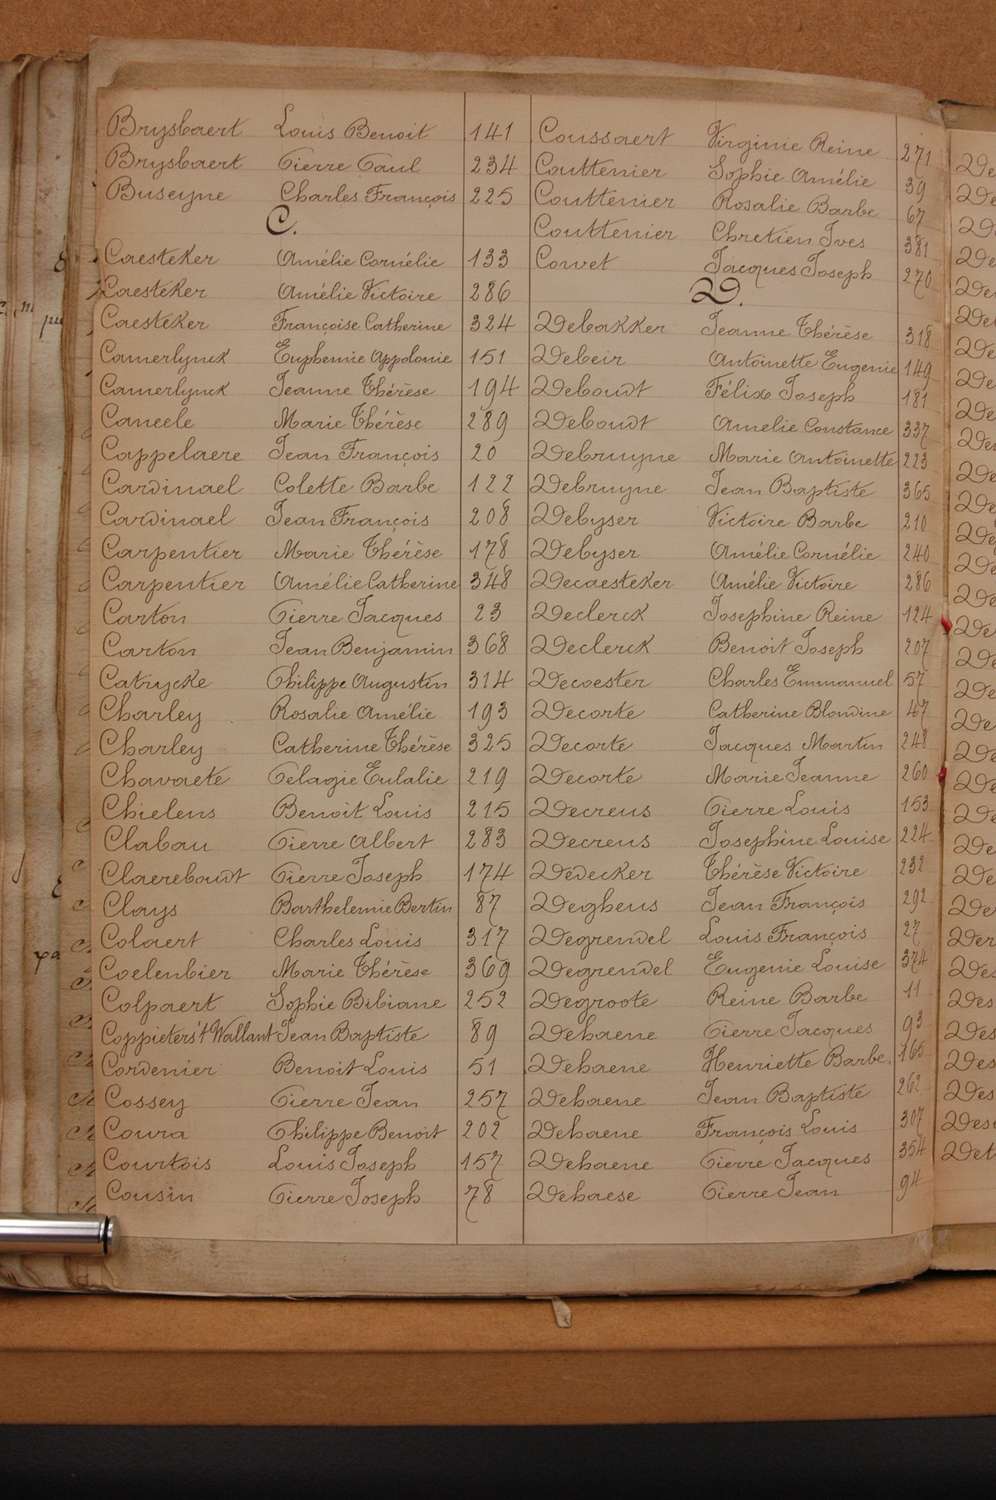 Brysbaert Louis Benoit 141
Brysbaert Pierre Paul 234
Buseyne Charles François 225
C.
Caesteker Amélie Cornélie 133
Caesteker Amélie Victoire 286
Caesteker Françoise Catherine 324
Camerlynck Euphemie Appolonie 151
Camerlynck Jeanne Thérèse 194
Caneele Marie Thérèse 289
Cappelaere Jean François 20
Cardinael Colette Barbe 122
Cardinael Jean François 208
Carpentier Marie Thérèse 178
Carpentier Amélie Catherine 348
Carton Pierre Jacques 23
Carton Jean Benjamin 368
Catrycke Philippe Augustin 314
Charley Rosalie Amélie 193
Charley Catherine Thérèse 325
Chavaete Pelagie Eulalie 219
Chielens Benoit Louis 215
Clabau Pierre Albert 283
Claereboudt Pierre Joseph 174
Clays Barthelemie Bertin 87
Colaert Charles Louis 317
Coelenbier Marie Thérèse 369
Colpaert Sophie Bibiane 252
Coppieters't Wallant Jean Baptiste 89
Cordenier Benoit Louis 51
Cossey Pierre Jean 257
Coura Philippe Benoit 202
Courtois Louis Joseph 157
Cousin Pierre Joseph 78
Coussaert Virginie Reine 271
Couttenier Sophie Amélie 39
Couttenier Rosalie Barbe 67
Couttenier Chretien Yves 381
Covet Jacques Joseph 270
D.
Debakker Jeanne Thérèse 318
Debeir Antoinette Eugenie 149
Deboudt Félix Joseph 181
Deboudt Amelie Constance 337
Debruyne Marie Antoinette 223
Debruyne Jean Baptiste 365
Debyser Victoire Barbe 210
Debyser Amélie Cornélie 240
Decaesteker Amélie Victoire 286
Declerck Josephine Reine 124
Declerck Benoit Joseph 207
Decoester Charles Emmanuel 57
Decorte Catherine Blondine 47
Decorte Jacques Martin 248
Decorte Marie Jeanne 260
Decreus Pierre Louis 153
Decreus Josephine Louise 224
Dedecker Thérèse Victoire 232
Degheus Jean François 292
Degrendel Louis François 27
Degrendel Eugenie Louise 374
Degroote Reine Barbe 11
Dehaene Pierre Jacques 93
Dehaene Henriette Barbe. 165
Dehaene Jean Baptiste 262
Dehaene François Louis 307
Dehaene Pierre Jacques 354
Dehaese Pierre Jean 94